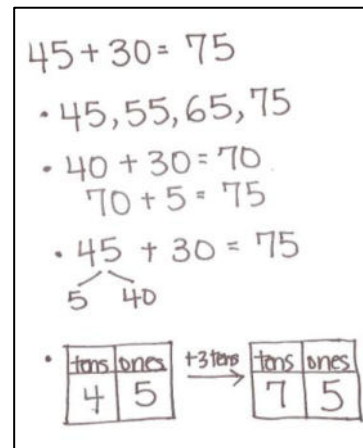 45 + 30 = 75
• 45, 55, 65, 75
• 40 + 30 = 70
70 + 5 = 75
• 45 + 30 = 75
5 40
• tens ones +3 tens tens ones
4 5 7 5